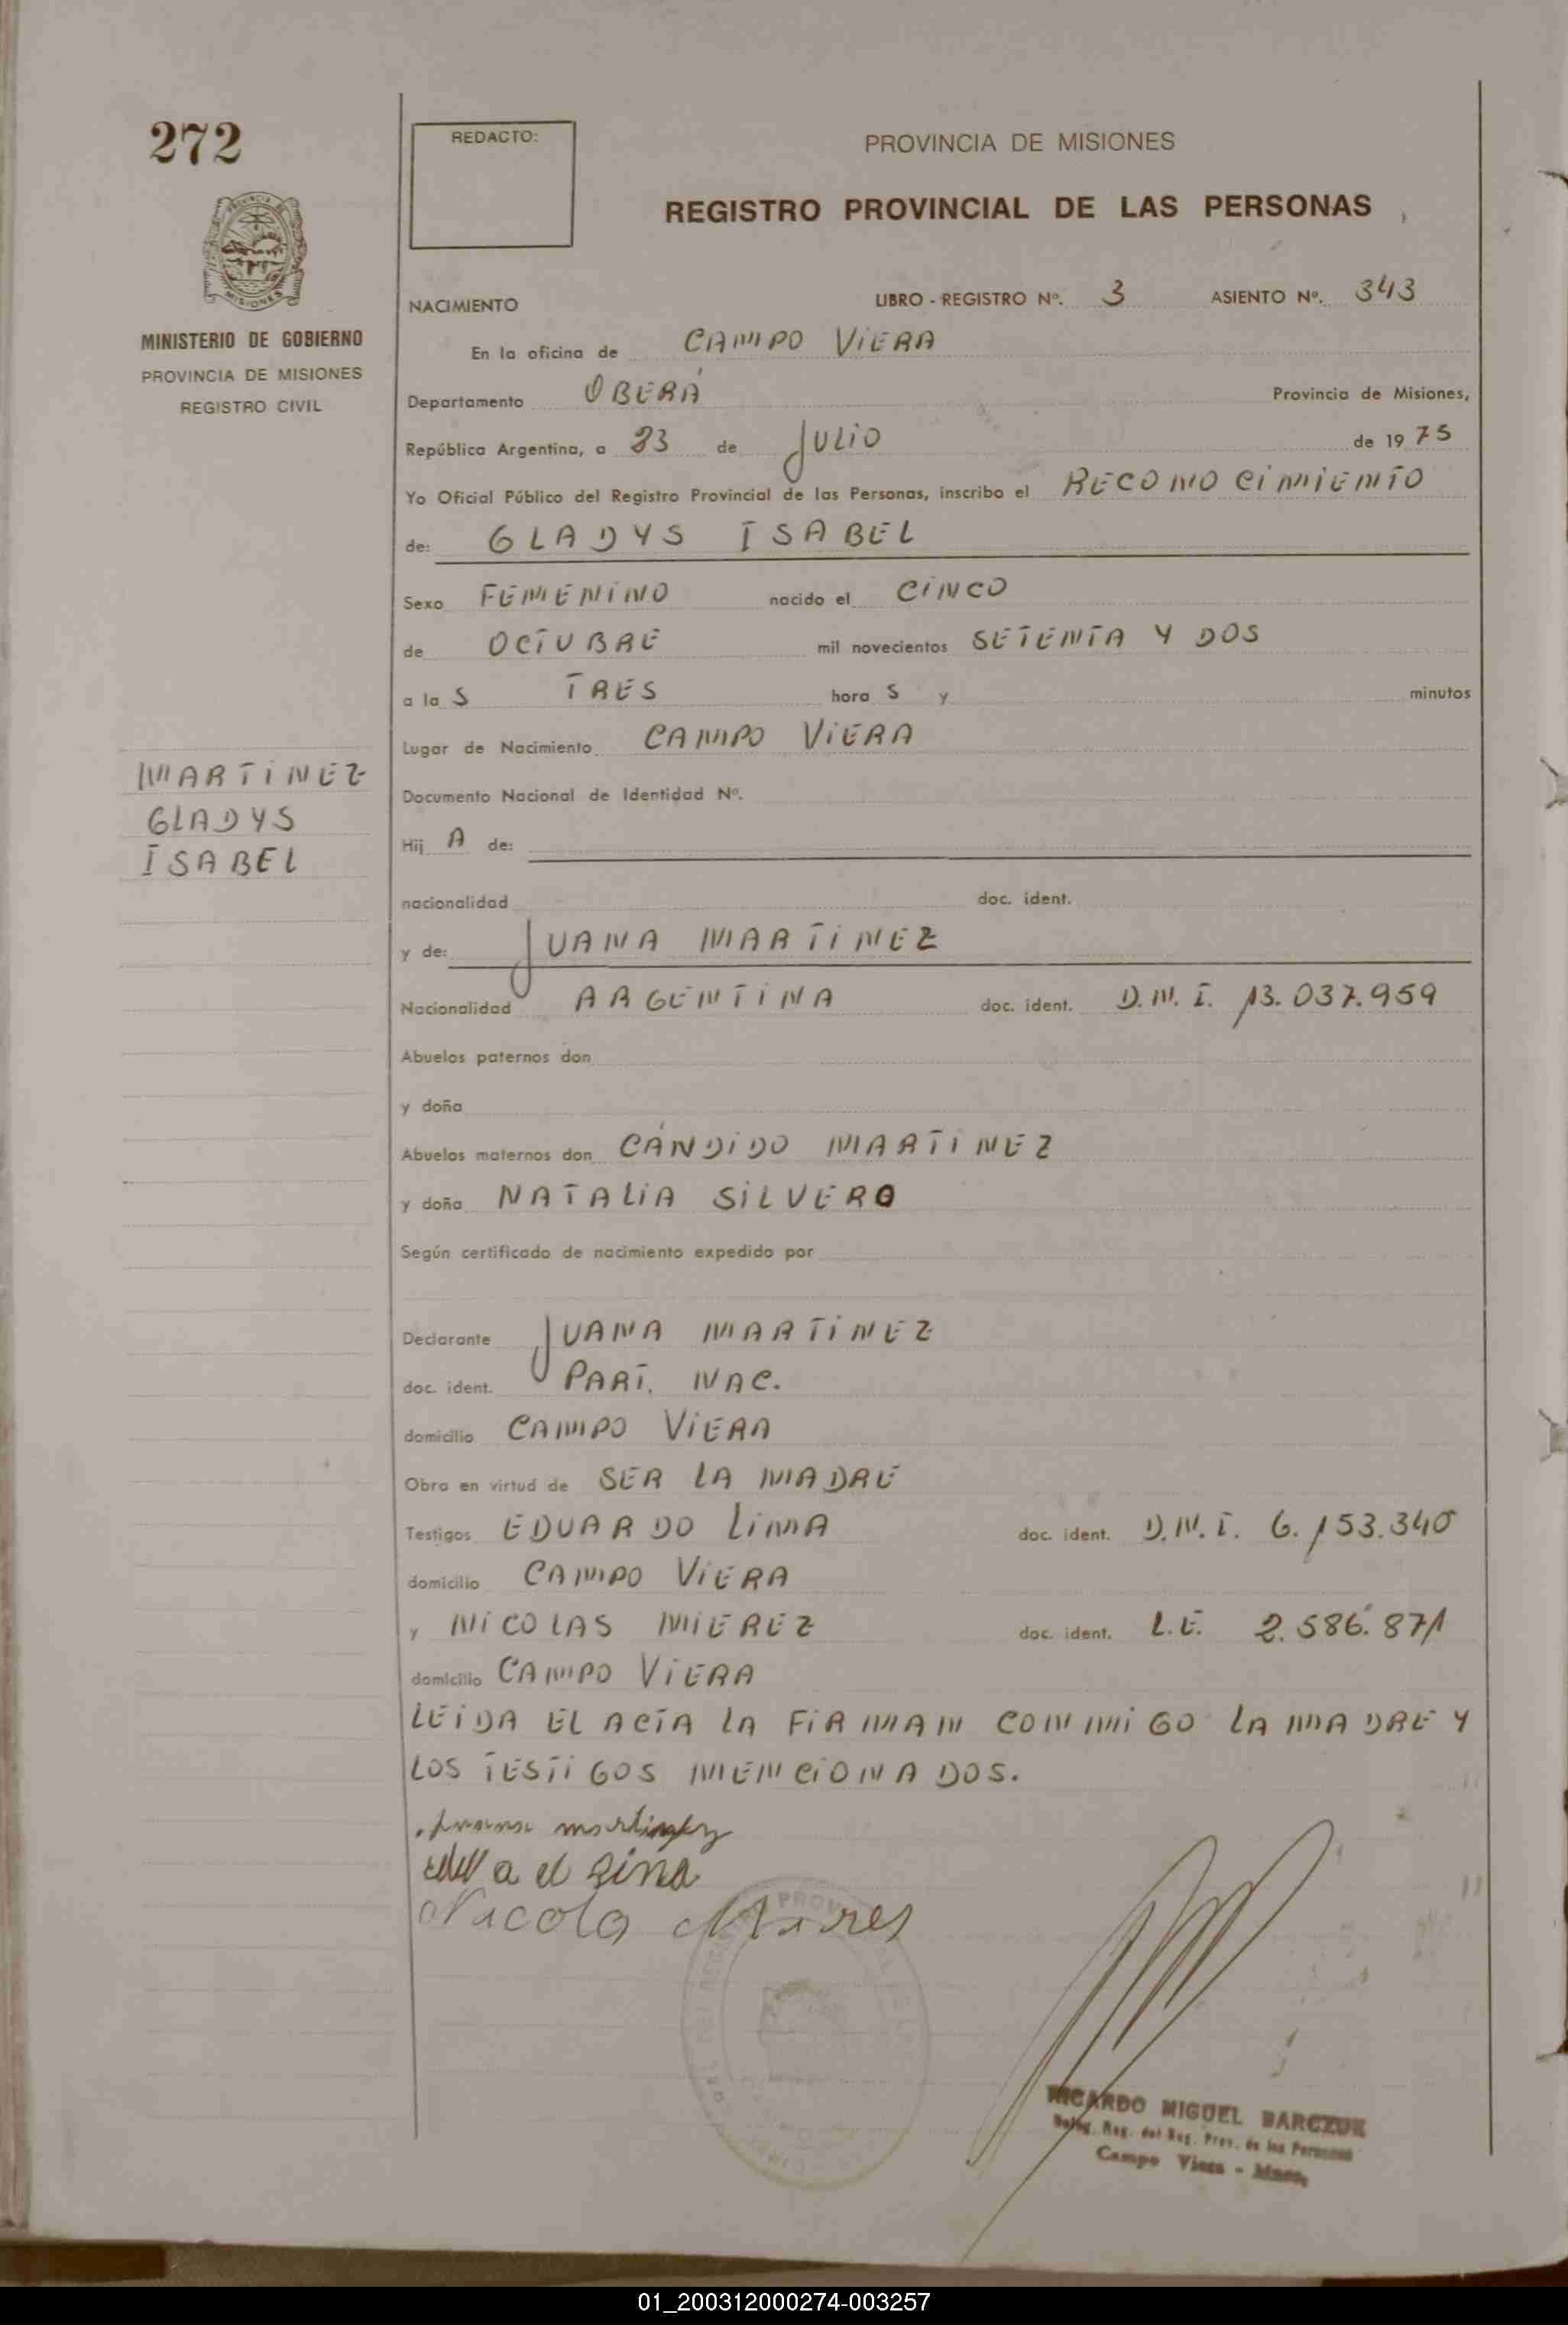 272
REDACTO:
PROVINCIA DE MISIONES
REGISTRO PROVINCIAL DE LAS PERSONAS
MISIONES
MINISTERIO DE GOBIERNO
PROVINCIA DE MISIONES
REGISTRO CIVIL
NACIMIENTO LIBRO - REGISTRO Nº. 3 ASIENTO Nº. 343
En la oficina de CAMPO VIERA
Departamento OBERÁ Provincia de Misiones,
República Argentina, a 23 de JULIO de 19 75
Yo Oficial Público del Registro Provincial de las Personas, inscribo el RECONOCIMIENTO
de: GLADYS ISABEL
Sexo FEMENINO nacido el CINCO
de OCTUBRE mil novecientos SETENTA Y DOS
a la S TRES hora S y minutos
Lugar de Nacimiento CAMPO VIERA
MARTINEZ
GLADYS
ISABEL
Documento Nacional de Identidad Nº.
Hij A de:
nacionalidad doc. ident.
y de: JUANA MARTINEZ
Nacionalidad ARGENTINA doc. ident. D.N.I. 13.037.959
Abuelos paternos don
y doña
Abuelos maternos don CÁNDIDO MARTINEZ
y doña NATALIA SILVERO
Según certificado de nacimiento expedido por
Declarante JUANA MARTINEZ
doc. ident. PART. NAC.
domicilio CAMPO VIERA
Obra en virtud de SER LA MADRE
Testigos EDUARDO LIMA doc. ident. D.N.I. 6.153.340
domicilio CAMPO VIERA
y NICOLAS MIEREZ doc. ident. L.E. 2.586.871
domicilio CAMPO VIERA
LEIDA EL ACTA LA FIRMAN CONMIGO LA MADRE Y
LOS TESTIGOS MENCIONADOS.
Juana martinez
RICARDO MIGUEL BARCZUK
Deleg. Reg. del Reg. Prov. de las Personas
Campo Viera - Mnes.
01_200312000274-003257